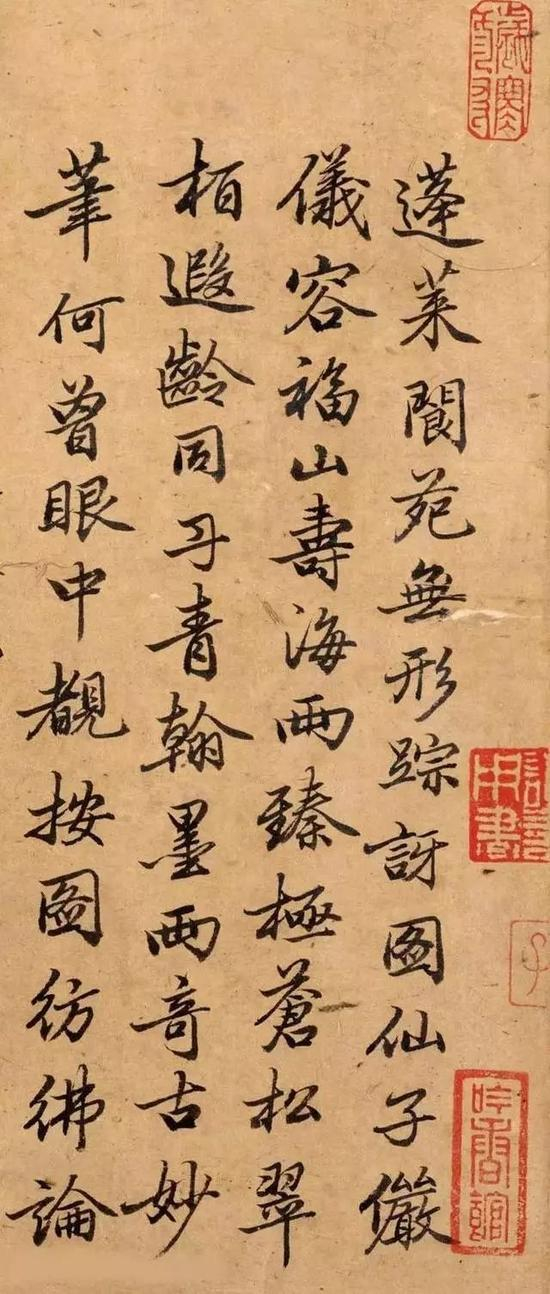 蓬萊閬苑無形踪訝图仙子儼
儀容福山壽海两臻極蒼松翠
柏遐齡同丹青翰墨两奇古妙
筆何曾眼中覩按圖彷彿論
吟香館